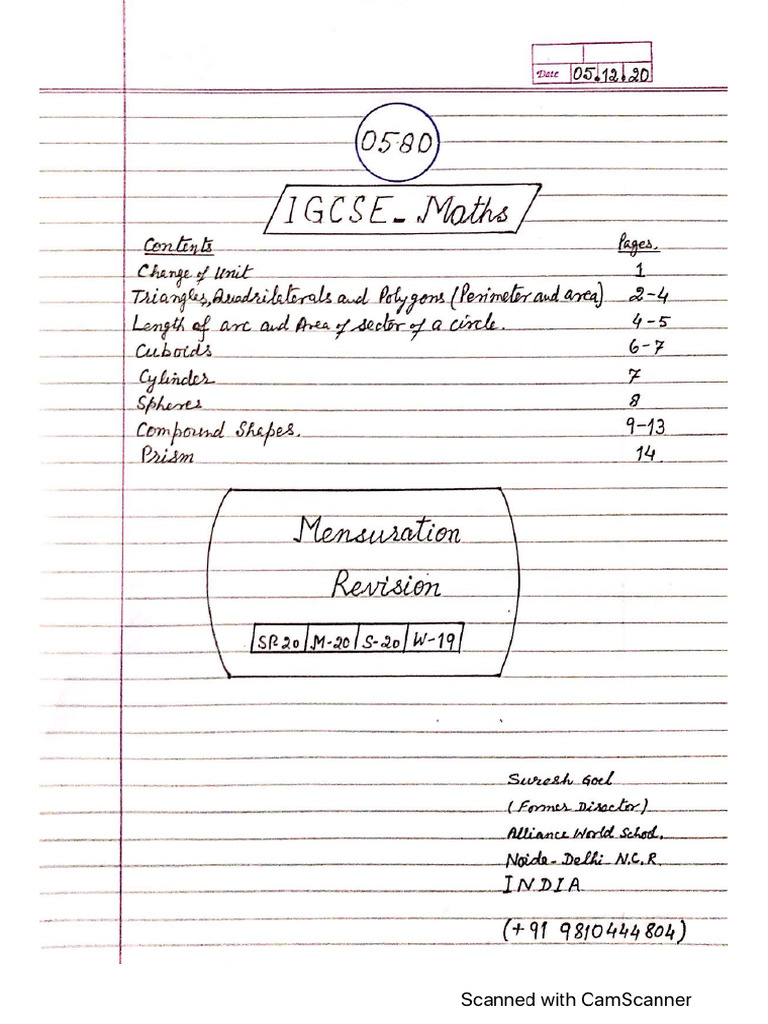 Date 05.12.20
0580
IGCSE-Maths
Contents Pages.
Change of Unit 1
Triangles, Quadrilaterals and Polygons (Perimeter and area) 2-4
Length of arc and Area of sector of a circle. 4-5
Cuboids 6-7
Cylinder 7
Spheres 8
Compound Shapes. 9-13
Prism 14
Mensuration
Revision
SP-20 M-20 S-20 W-19
Suresh Goel
(Former Director)
Alliance World School,
Noida-Delhi N.C.R.
INDIA
(+91 9810444804)
Scanned with CamScanner